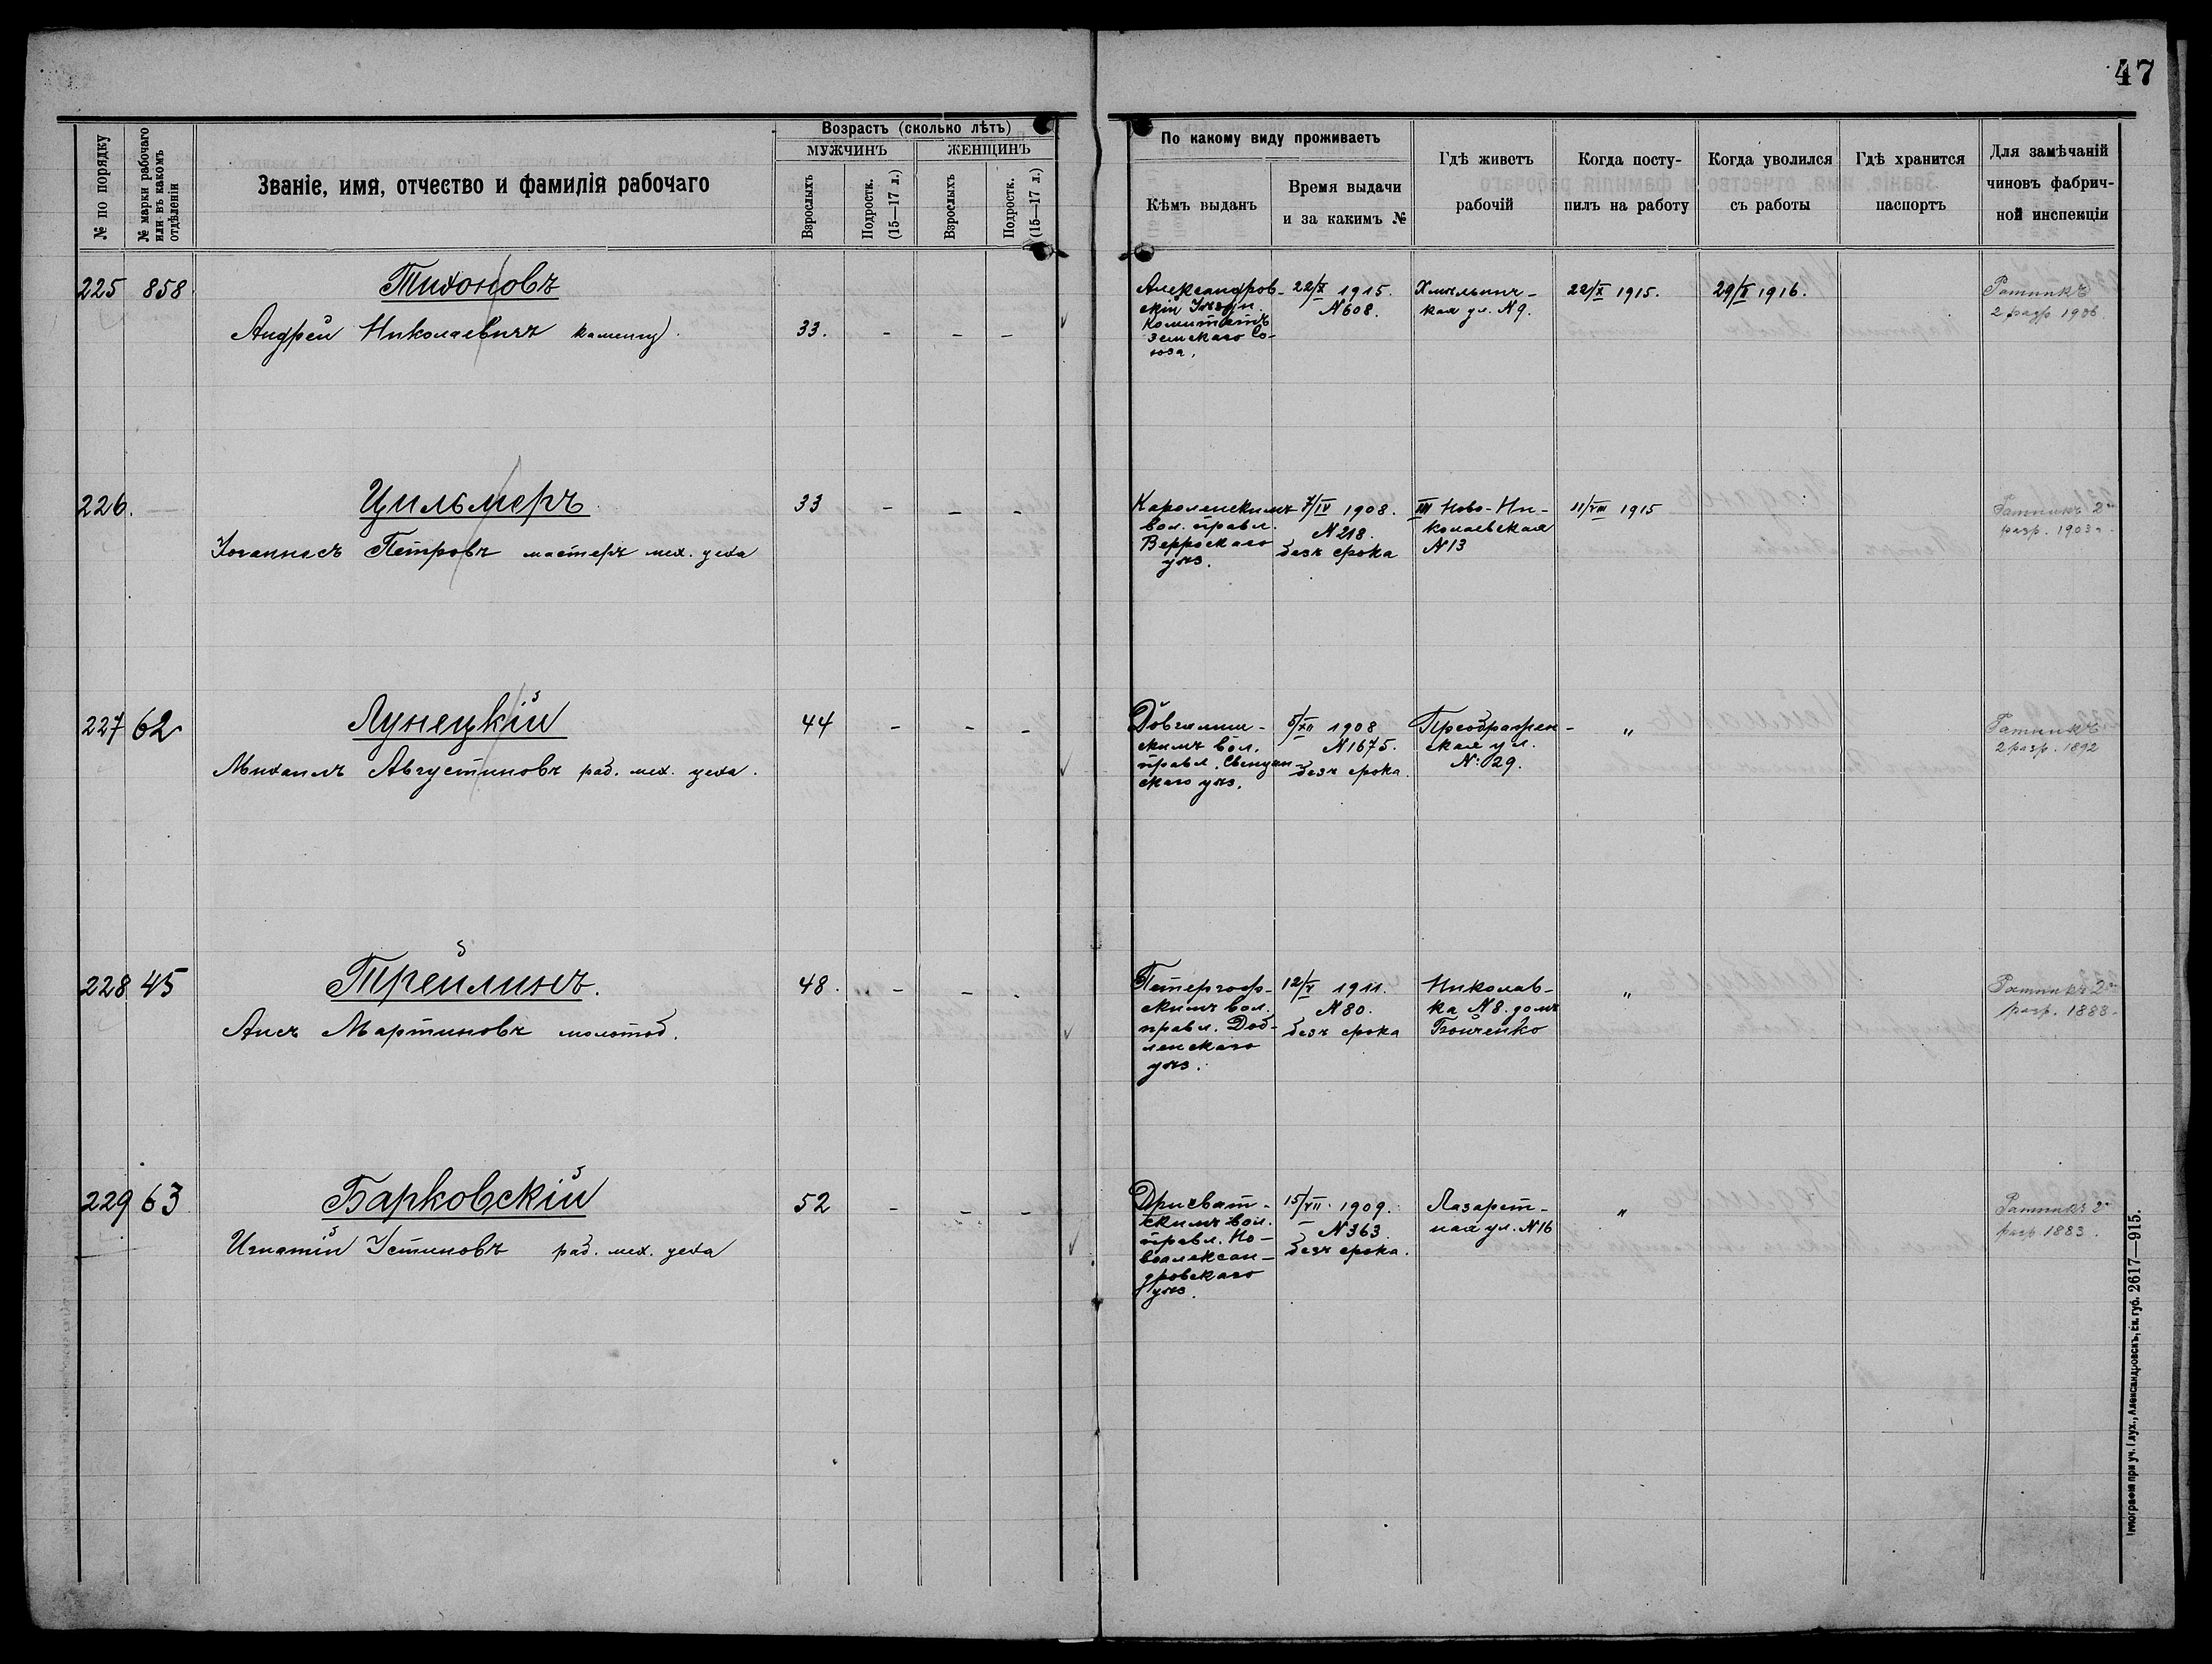 47
№ по порядку
№ марки рабочаго
или въ какомъ
отдѣленіи
Званіе, имя, отчество и фамилія рабочаго
Возрастъ (сколько лѣтъ)
МУЖЧИНЪ
ЖЕНЩИНЪ
Взрослыхъ
Подростк.
(15—17 л.)
Взрослыхъ
Подростк.
(15—17 л.)
По какому виду проживаетъ
Кѣмъ выданъ
Время выдачи
и за какимъ №
Гдѣ живетъ
рабочій
Когда посту-
пилъ на работу
Когда уволился
съ работы
Гдѣ хранится
паспортъ
Для замѣчаній
чиновъ фабрич-
ной инспекціи
225 858
Тихоновъ
Андрей Николаевичъ каменщ.
33. - - -
Александров-
скій Уѣздн
Комитетъ
Земскаго Со-
юза.
22/X 1915.
№ 608.
Хмѣльниц-
кая ул. № 9.
22/X 1915.
29/II 1916.
Ратникъ
2 разр. 1906.
226. —
Цильмеръ
Іоганнесъ Петровъ мастеръ мех. цеха
33 - - -
Кароленскимъ
вол. правл.
Верроскаго
уѣз.
7/IV 1908.
№ 218.
безъ срока
III Ново-Ни-
колаевская
№ 13
11/VIII 1915
Ратникъ 2го
разр. 1903 г.
227 62
Лунецкій
Михаилъ Августиновъ раб. мех. цеха.
44 - - -
правл. Свенцян-
скаго уѣз.
5/XII 1908
№ 1675.
безъ срока.
Преображен-
ская ул.
№: 29.
"
Ратникъ
2 разр. 1892
228 45
Трейлинъ.
Ансъ Мартиновъ молотоб.
48. - - -
Петергоф-
скимъ вол.
правл. Доб-
ленскаго
уѣз.
12/V 1911.
№ 80.
безъ срока
Николав-
ка № 8. домъ
Бойченко
"
Ратникъ 2го
разр. 1888.
229 63
Барковскій
Игнатій Устиновъ раб. мех. цеха
52 - - -
Дрисвят-
скимъ вол.
правл. Но-
воалексан-
дровскаго
уѣз.
15/VII. 1909.
№ 363.
безъ срока.
Лазарет-
ная ул. № 16
"
Ратникъ 2го
разр 1883.
Типографія при уч. Глух., Александровскъ, Ек. губ. 2617—915.